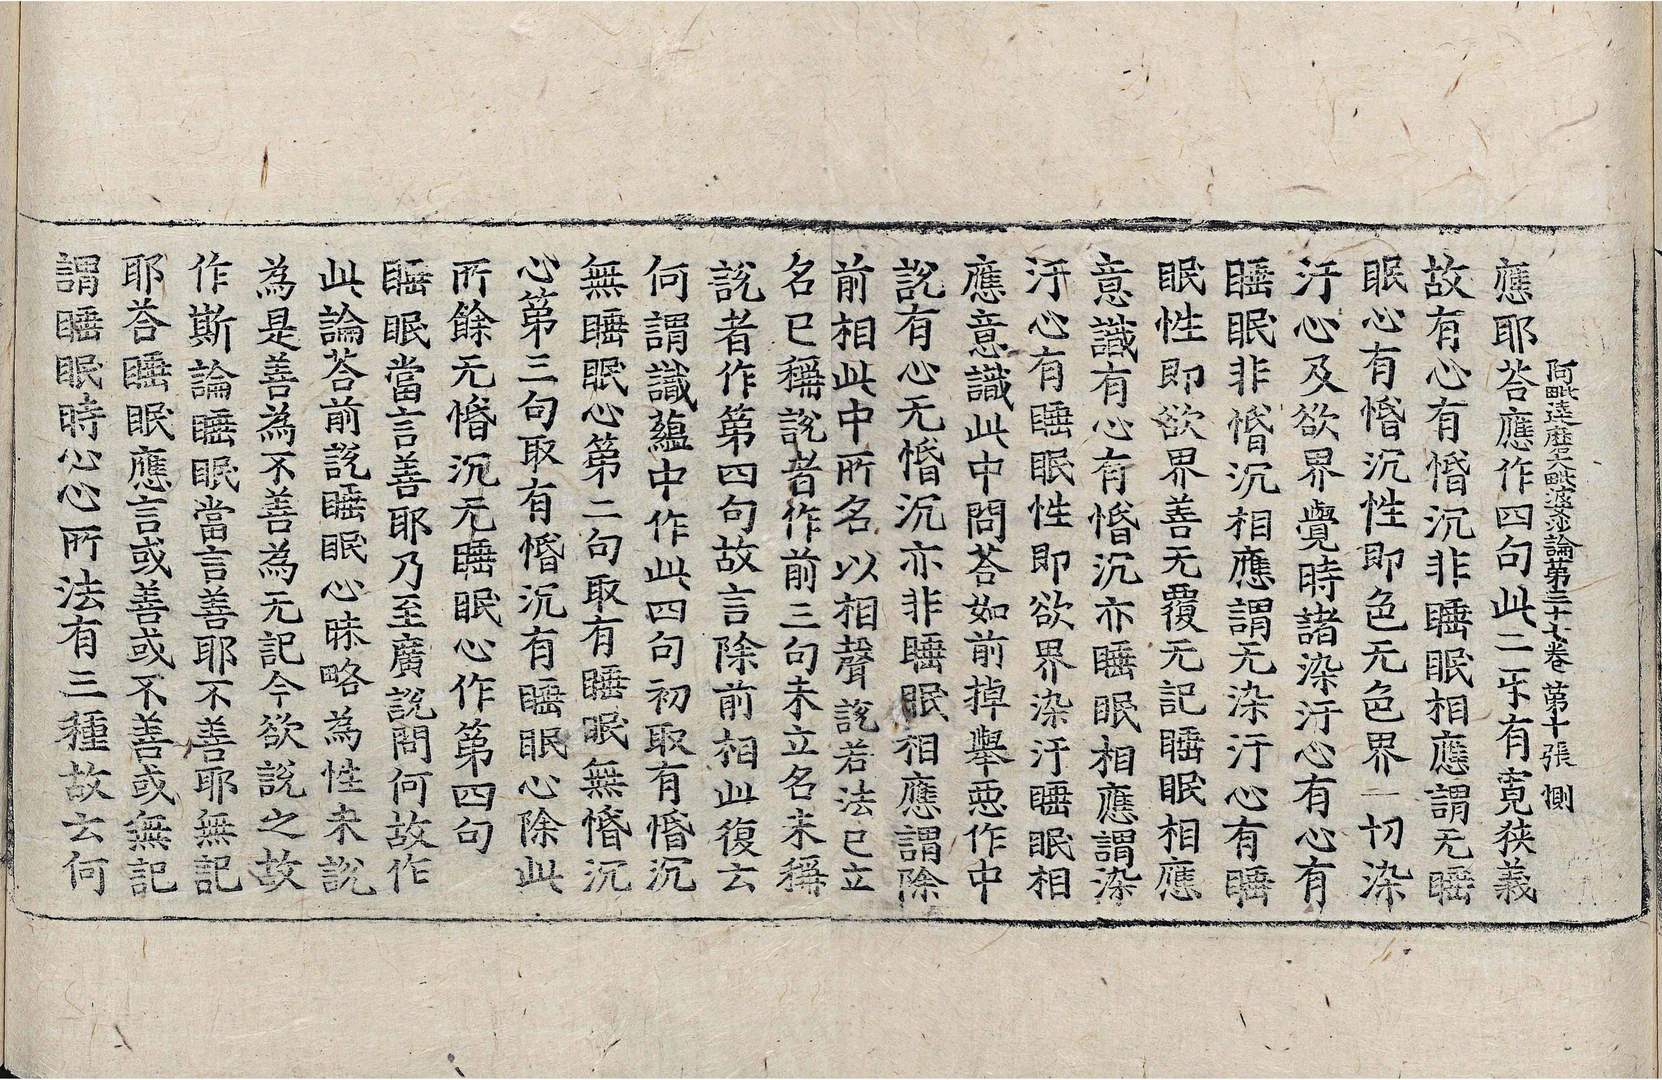 阿毗達磨大毗婆沙論第三十七卷 第十張 惻
應耶荅應作四句此二互有寛狹義
故有心有惛沉非睡眠相應謂无睡
眠心有惛沉性即色无色界一切染
汙心及欲界覺時諸染汙心有心有
睡眠非惛沉相應謂无染汙心有睡
眠性即欲界善无覆无記睡眠相應
意識有心有惛沉亦睡眠相應謂染
汙心有睡眠性即欲界染汙睡眠相
應意識此中問荅如前掉舉惡作中
說有心无惛沉亦非睡眠相應謂除
前相此中所名以相聲說若法已立
名已稱說者作前三句未立名未稱
說者作第四句故言除前相此復云
何謂識蘊中作此四句初取有惛沉
無睡眠心第二句取有睡眠無惛沉
心第三句取有惛沉有睡眠心除此
所餘无惛沉无睡眠心作第四句
睡眠當言善耶乃至廣說問何故作
此論荅前說睡眠心昧略為性未說
為是善為不善為无記今欲說之故
作斯論睡眠當言善耶不善耶無記
耶荅睡眠應言或善或不善或無記
謂睡眠時心心所法有三種故云何